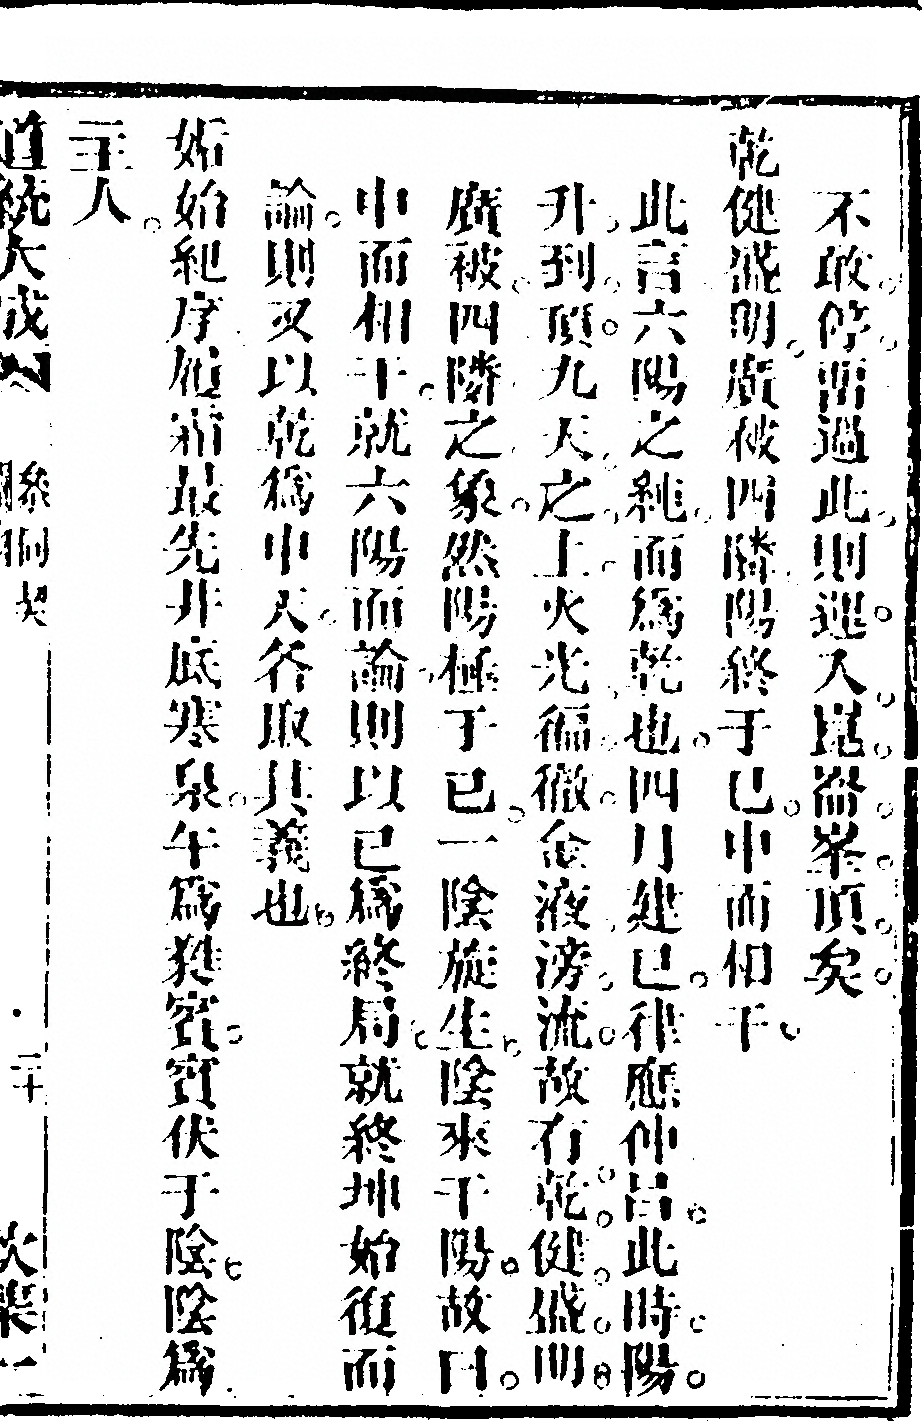 不敢停留過此則運入崑崙峯頂矣
乾健盛明廣被四隣陽終于巳中而相干
此言六陽之純而爲乾也四月建巳律應仲呂此時陽
升到頂九天之上火光徧徹金液滂流故有乾健盛明
廣被四隣之象然陽極于巳一陰旋生陰來干陽故曰
中而相干就六陽而論則以巳爲終局就終坤始復而
論則又以乾爲中天各取其義也
姤始紀序履霜最先井底寒泉午爲蕤賓賓伏于陰陰爲
主人
道統大成 參同契 二十